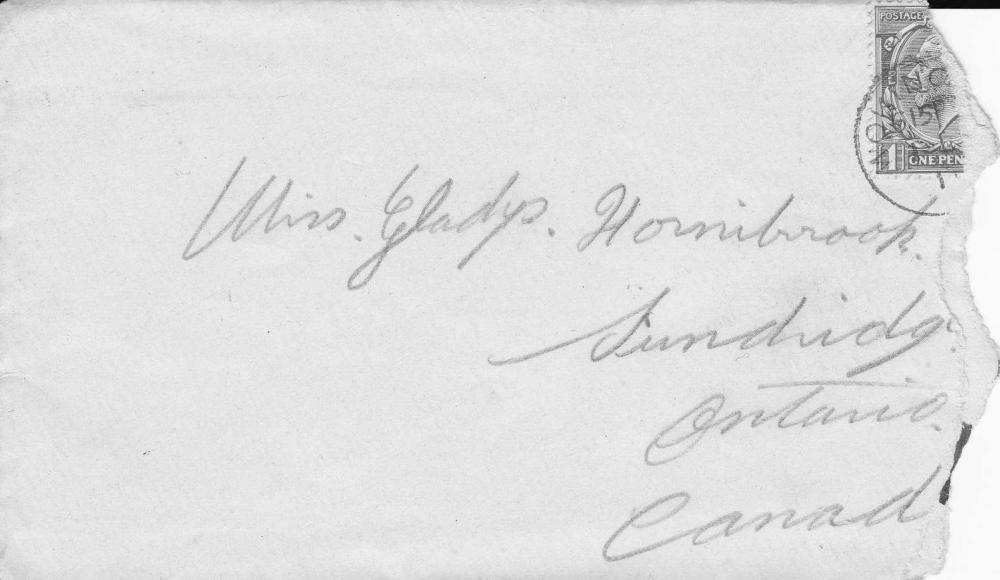 POSTAGE
15
1 ONE PEN
Miss. Gladys. Hornibrook.
Sundridg.
Ontario.
Canad